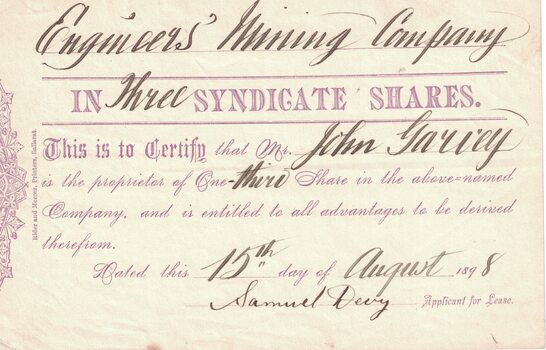 Engineers' Mining Company
IN Three SYNDICATE SHARES.
This is to Certify that Mr. John Garvey
is the proprietor of One-third Share in the above-named
Company, and is entitled to all advantages to be derived
therefrom.
Dated this 15th day of August 1898
Samuel Devy Applicant for Lease.
Rider and Mercer, Printers, Ballarat.